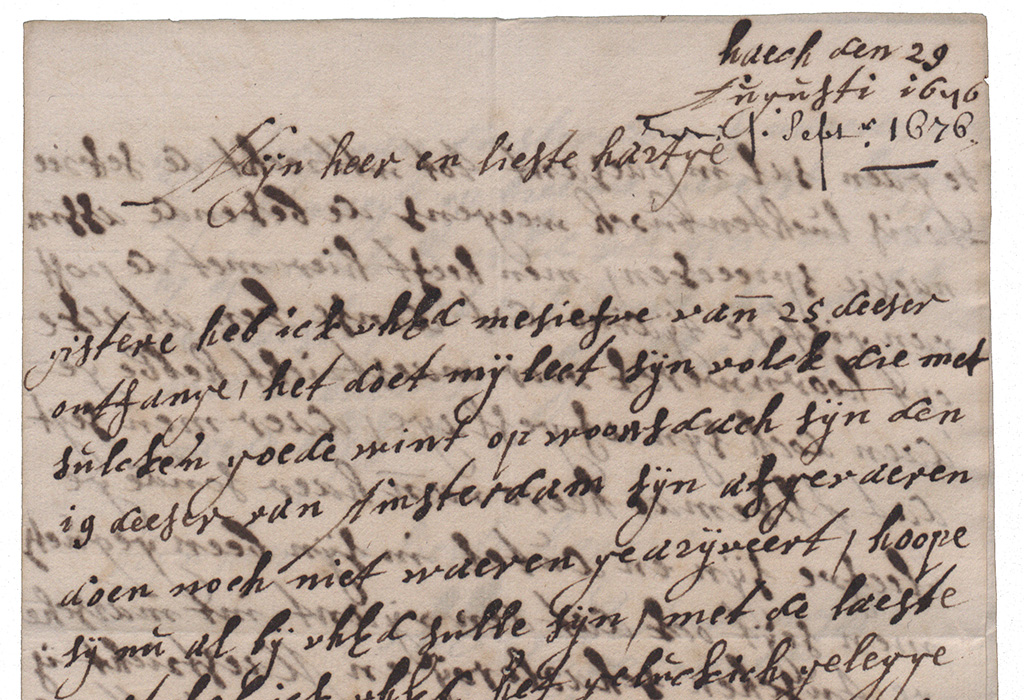 haech den 29
Augusti 1676
Sept. 1676.
Mijn heer en lieste hartye
gistere heb ick uhEd mesiefve vañ 25 deeser
ontfange, het doet mij leet sijn volck die met
sulcken goede wint op woonsdach sijn den
19 deeser van Amsterdam sijn afgevaeren
doen noch niet waeren gearyveert, hoope
sij nu al bij uhEd sulle sijn, met de laeste
ick uhEd het geluckich gelegge